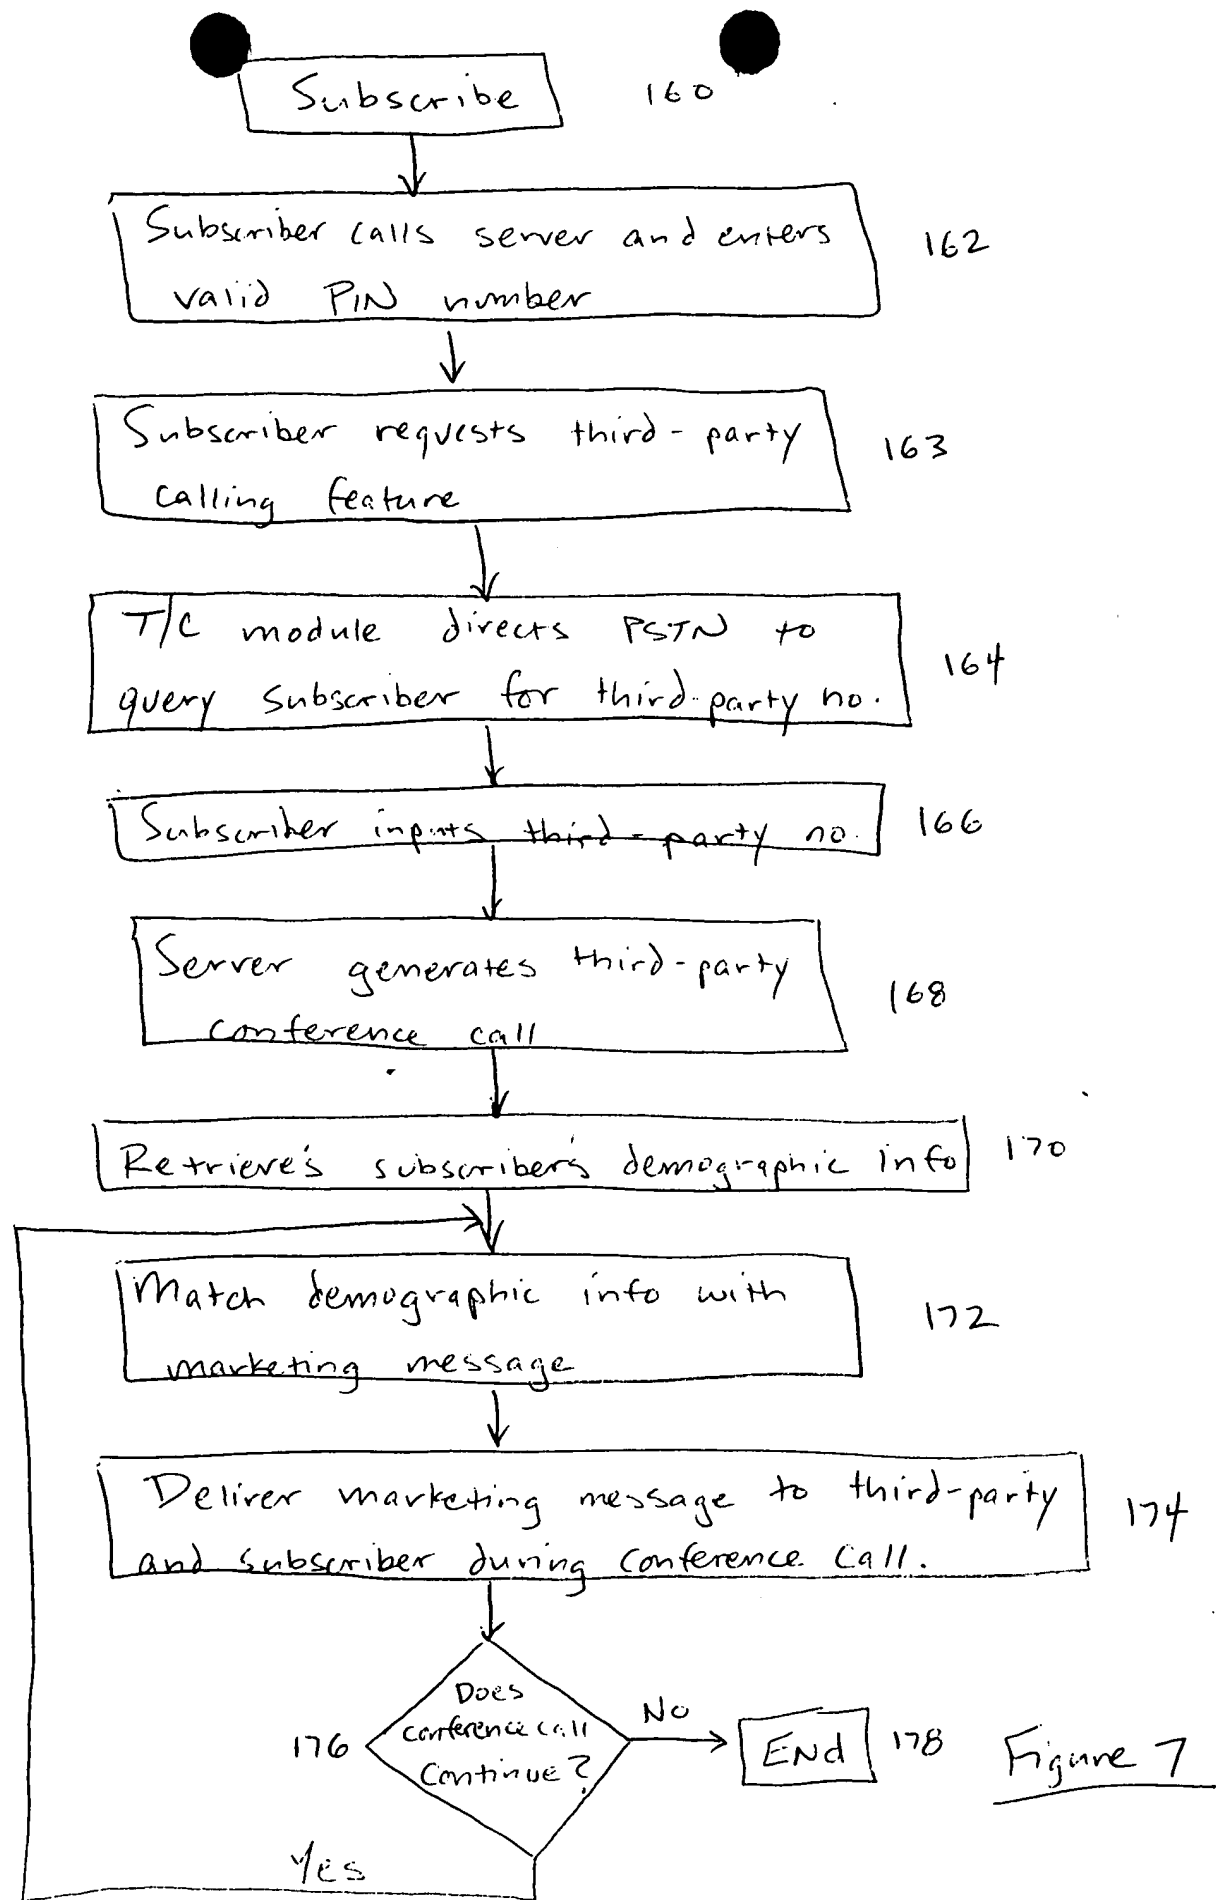 Subscribe
160
Subscriber calls server and enters
valid PIN number
162
Subscriber requests third-party
calling feature
163
T/C module directs PSTN to
query subscriber for third-party no.
164
Subscriber inputs third-party no.
166
Server generates third-party
conference call
168
Retrieve's subscriber's demographic info
170
Match demographic info with
marketing message
172
Deliver marketing message to third-party
and subscriber during conference call.
174
Does
conference call
continue?
176
No
End
178
Figure 7
Yes